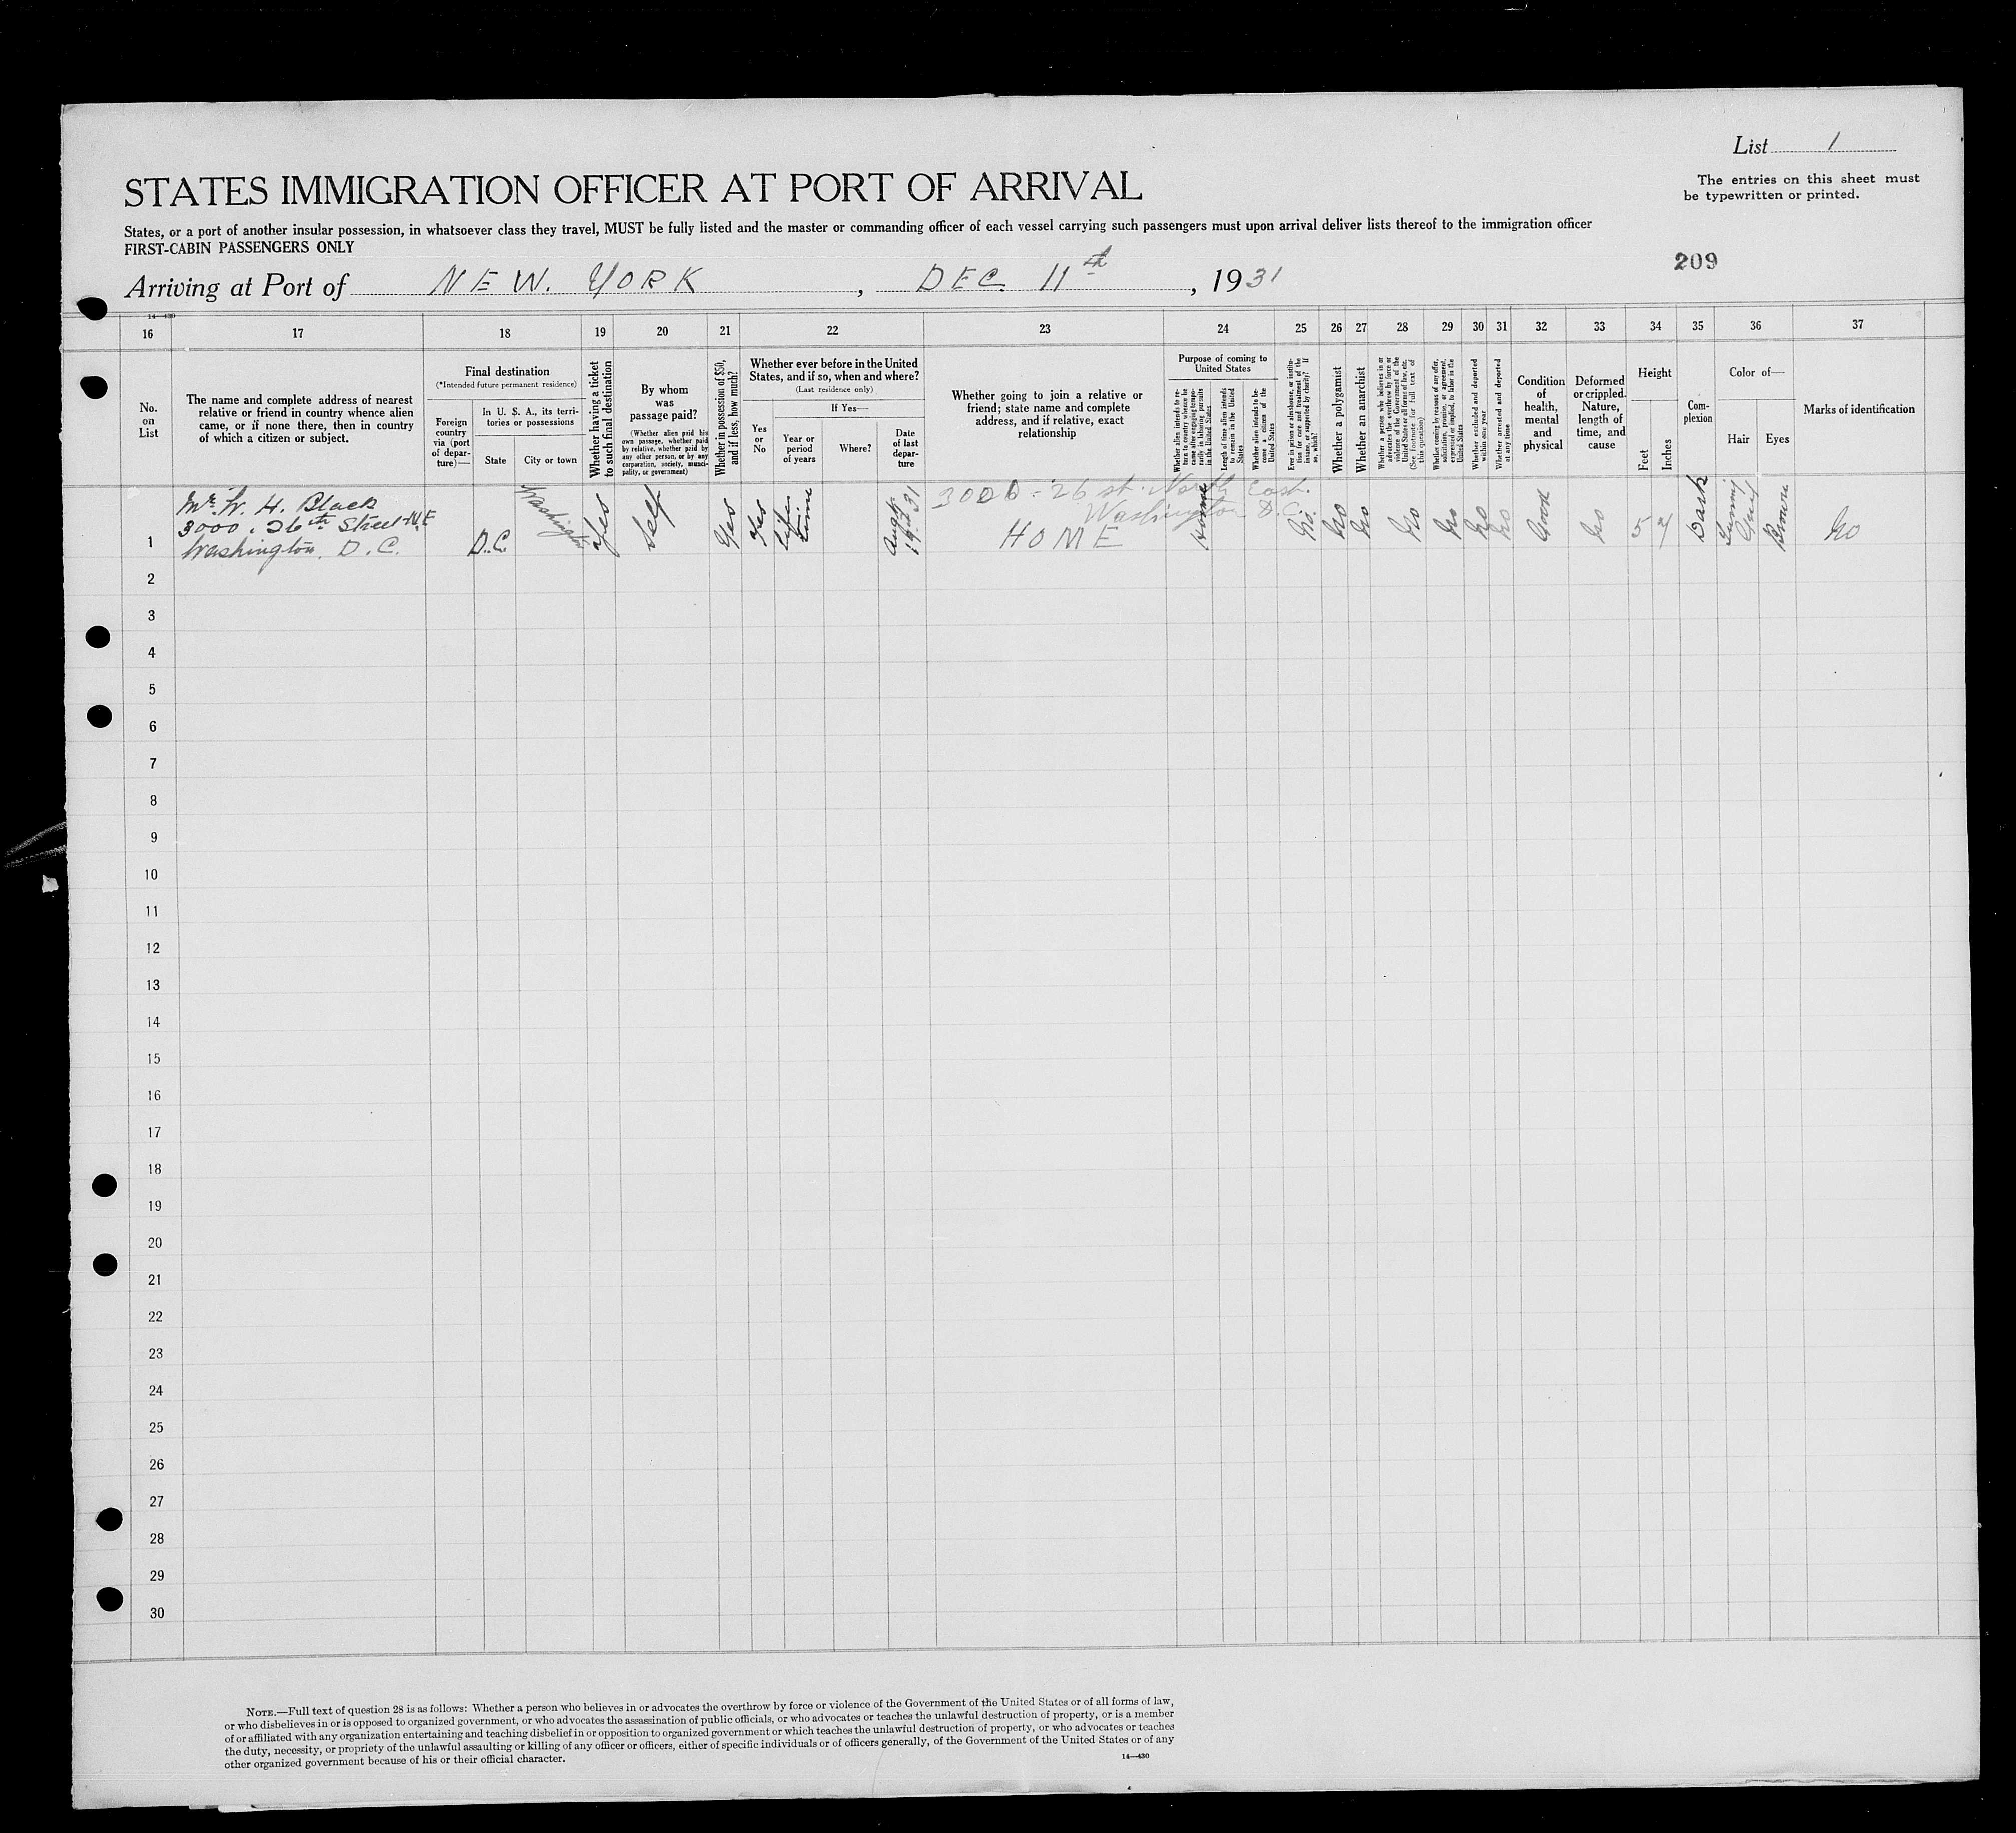 List 1
STATES IMMIGRATION OFFICER AT PORT OF ARRIVAL
The entries on this sheet must
be typewritten or printed.
States, or a port of another insular possession, in whatsoever class they travel, MUST be fully listed and the master or commanding officer of each vessel carrying such passengers must upon arrival deliver lists thereof to the immigration officer
FIRST-CABIN PASSENGERS ONLY
209
Arriving at Port of NEW. YORK, DEC 11th, 1931
14—430
16 17 18 19 20 21 22 23 24 25 26 27 28 29 30 31 32 33 34 35 36 37
No.
on
List
The name and complete address of nearest
relative or friend in country whence alien
came, or if none there, then in country
of which a citizen or subject.
Final destination
(*Intended future permanent residence)
Foreign
country
via (port
of depar-
ture)—
In U. S. A., its terri-
tories or possessions
State
City or town
Whether having a ticket
to such final destination
By whom
was
passage paid?
(Whether alien paid his
own passage, whether paid
by relative, whether paid by
any other person, or by any
corporation, society, munici-
pality, or government)
Whether in possession of $50,
and if less, how much?
Whether ever before in the United
States, and if so, when and where?
(Last residence only)
Yes
or
No
If Yes—
Year or
period
of years
Where?
Date
of last
depar-
ture
Whether going to join a relative or
friend; state name and complete
address, and if relative, exact
relationship
Purpose of coming to
United States
Whether alien intends to re-
turn to country whence he
came after engaging tempo-
rarily in laboring pursuits
in the United States
Length of time alien intends
to remain in the United
States
Whether alien intends to be-
come a citizen of the
United States
Ever in prison or almshouse, or institu-
tion for care and treatment of the
insane, or supported by charity? If
so, which?
Whether a polygamist
Whether an anarchist
Whether a person who believes in or
advocates the overthrow by force or
violence of the Government of the
United States or all forms of law, etc.
(See footnote for full text of
this question)
Whether coming by reasons of any offer,
solicitation, promise, or agreement,
expressed or implied, to labor in the
United States
Whether excluded and deported
within one year
Whether arrested and deported
at any time
Condition
of
health,
mental
and
physical
Deformed
or crippled.
Nature,
length of
time, and
cause
Height
Feet
Inches
Com-
plexion
Color of—
Hair
Eyes
Marks of identification
Mr. W. H. Black
3000 . 26th Street N.E
Washington. D.C.
D.C.
Washington
Yes
Self
Yes
Yes
Life
time
Aug
19th 31
3000 - 26 st. North East.
Washington D.C.
HOME
Home
No
No
No
No
No
No
No
Good
No
5
7
Dark
Grey
Brown
No
1
2
3
4
5
6
7
8
9
10
11
12
13
14
15
16
17
18
19
20
21
22
23
24
25
26
27
28
29
30
NOTE.—Full text of question 28 is as follows: Whether a person who believes in or advocates the overthrow by force or violence of the Government of the United States or of all forms of law,
or who disbelieves in or is opposed to organized government, or who advocates the assassination of public officials, or who advocates or teaches the unlawful destruction of property, or is a member
of or affiliated with any organization entertaining and teaching disbelief in or opposition to organized government or which teaches the unlawful destruction of property, or who advocates or teaches
the duty, necessity, or propriety of the unlawful assaulting or killing of any officer or officers, either of specific individuals or of officers generally, of the Government of the United States or of any
other organized government because of his or their official character.
14—430